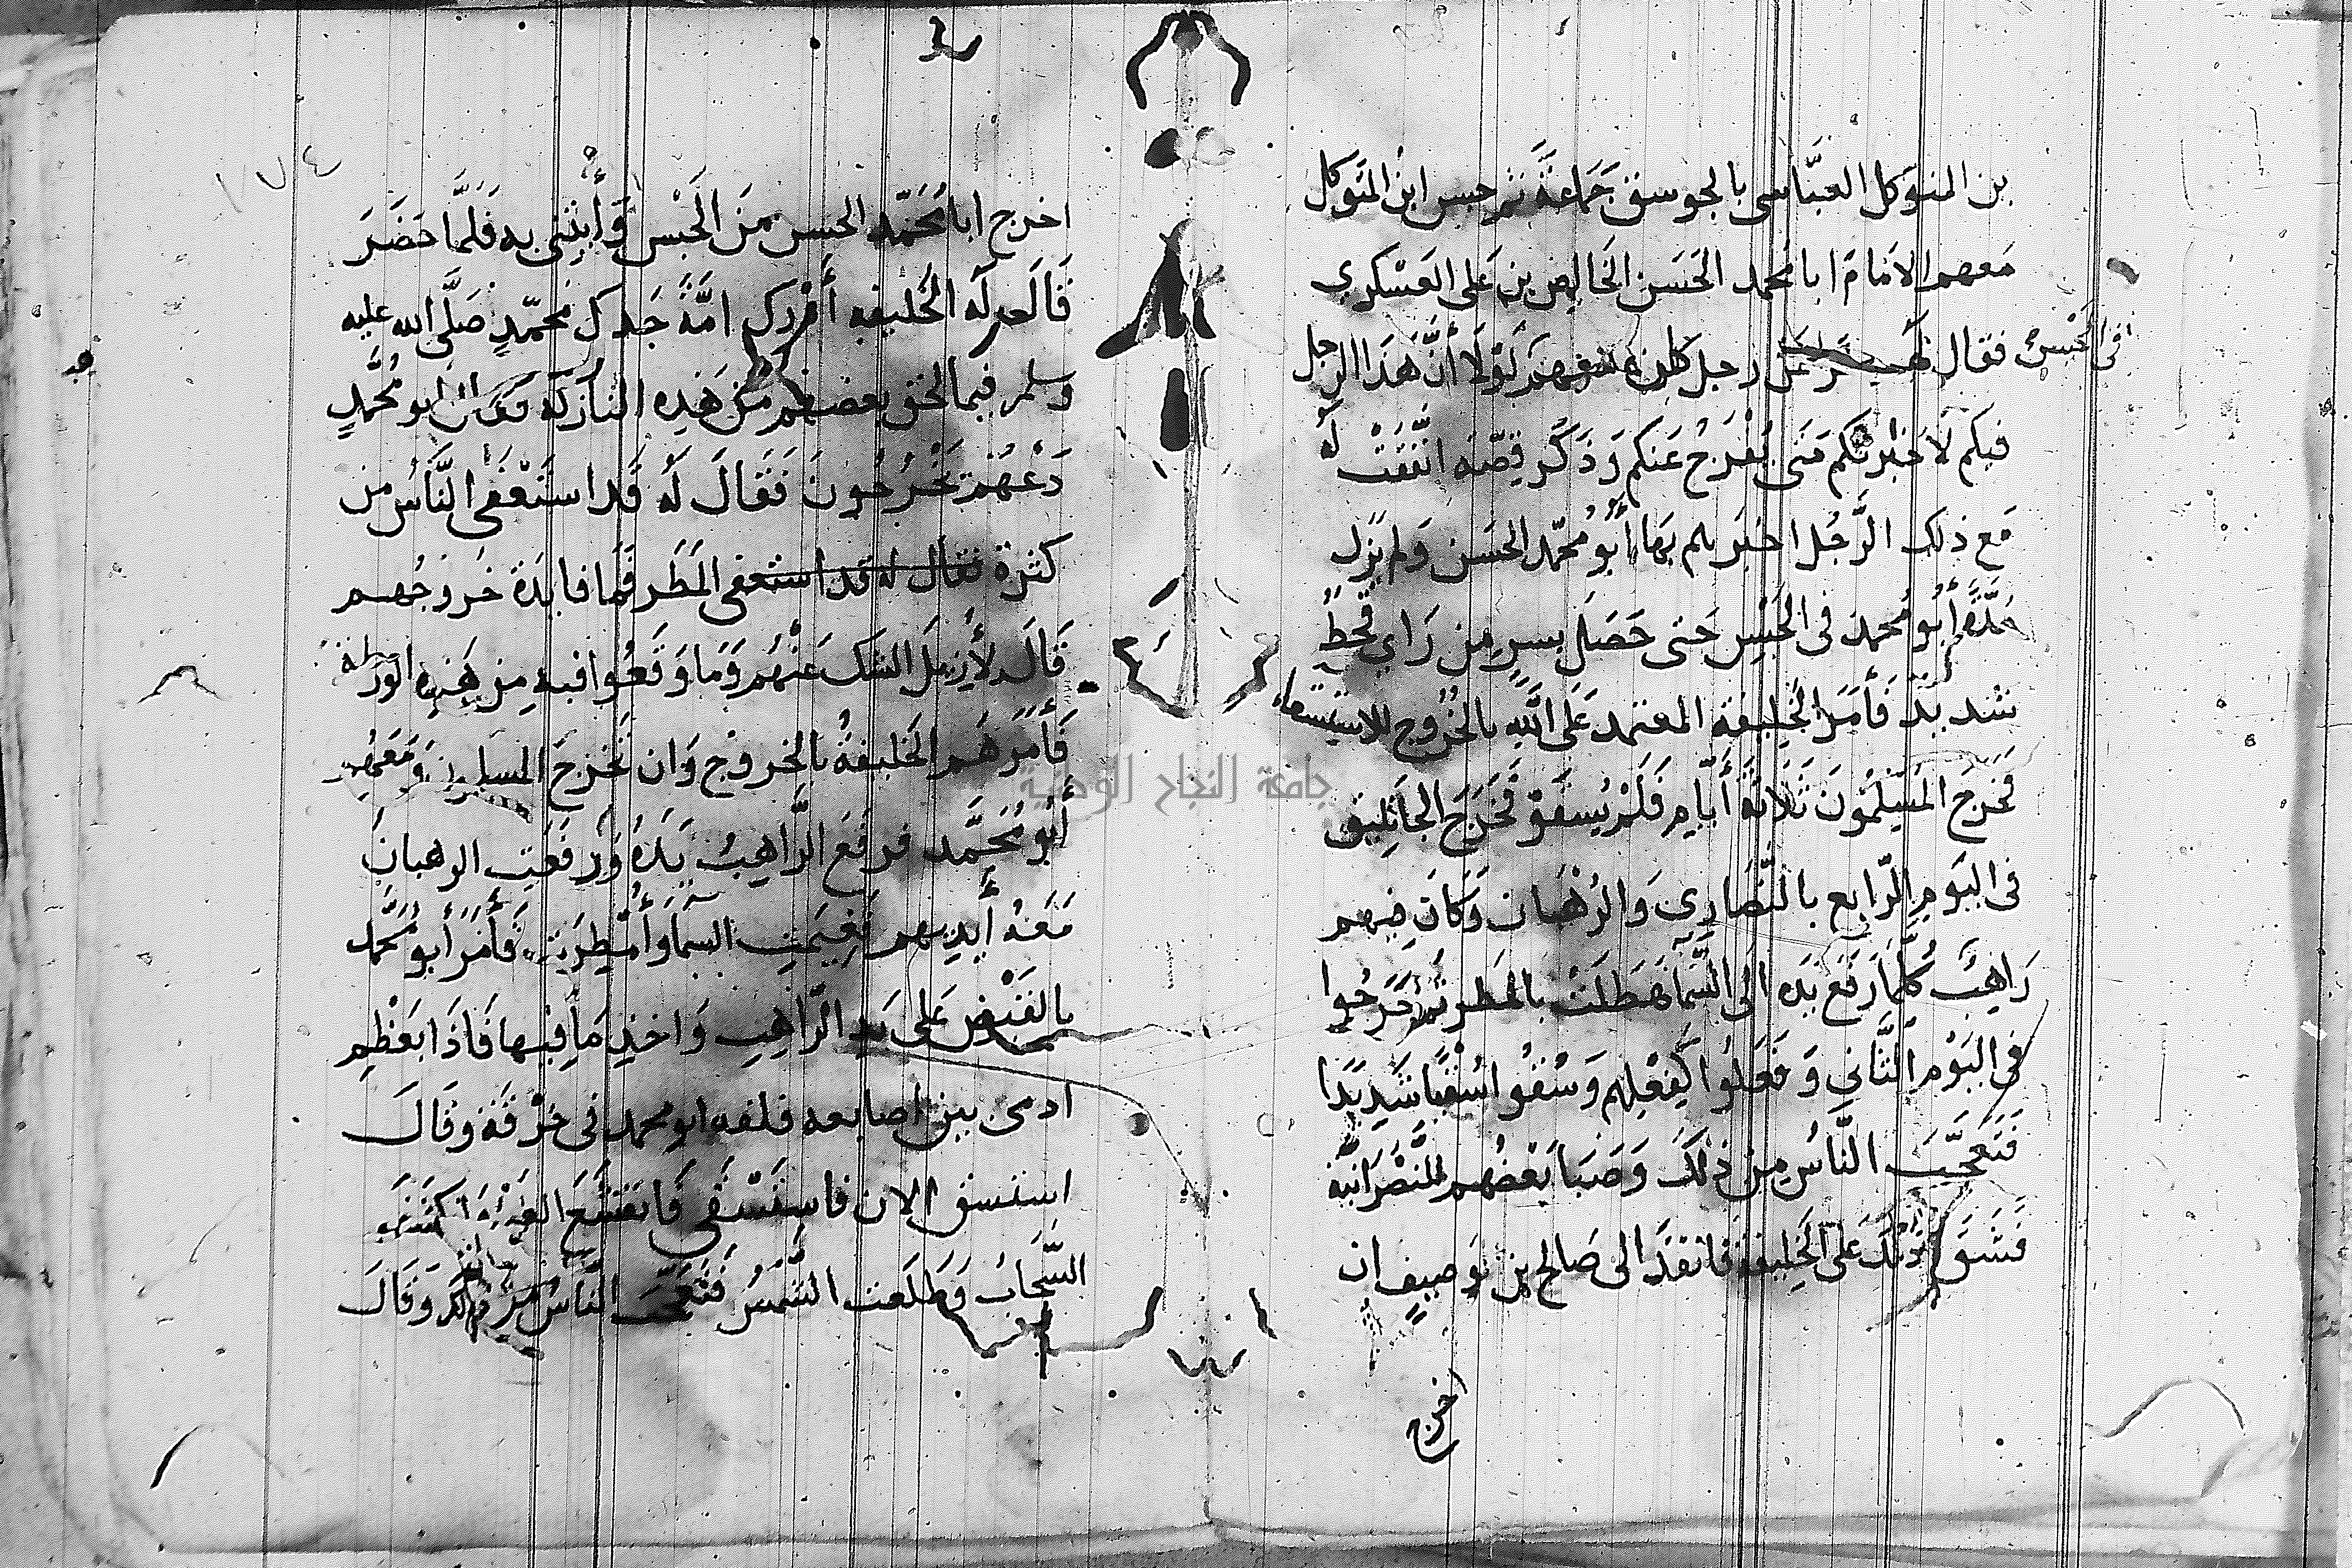 بن المتوكل العباسى بالجوسق جماعة ثم حبس ابن المتوكل
معهم الامام ابا محمد الحسن الخالص بن على العسكري
فى الحبس فقال رجل لولا أن هذا الرجل
فيكم لاخبرتكم متى يفرج عنكم وذكر قصه اتفقت له
مع ذلك الرجل اخبرهم بها أبو محمد الحسن ولم يزل
أبو محمد فى الحبس حتى حصل بسر من راى قحط
شديد فأمر الخليفة المعتمد على الله بالخروج للاستسقاء
فخرج المسلمون ثلاثة أيام فلم يسقو فخرج الجاثليق
فى اليوم الرابع بالنصارى والرهبان وكان فيهم
راهب كلما رفع يده الى السما هطلت بالمطر ثم خرجوا
فى اليوم الثانى وفعلوا كفعلهم وسقوا سقيا شديدا
فتعجب الناس من ذلك وصبا بعضهم للنصرانية
فشق ذلك على الخليفة فانفذ الى صالح بن يوصيف ان
اخرج
١٧٤
اخرج ابا محمد الحسن من الحبس وأيتنى به فلما حضر
قال له الخليفه أدرك امة جدك محمد صلى الله عليه
وسلم فيما لحق بعضهم من هذه النازلة فقال ابو محمد
دعهم يخرجون فقال له قد استعفى الناس من
كثرة فقال له قد استعفى المطر فما فايدة خروجهم
قال لأزيل الشك عنهم وما وقعوا فيه من هذه الورطة
فأمرهم الخليفة بالخروج وان تخرج المسلمون ومعهم
أبو محمد فرفع الراهب يده ورفعت الرهبان
معه أيديهم فغيمت السما وأمطرت فأمر أبو محمد
بالقبض على يد الراهب واخذ ما فيها فاذا بعظم
ادمى بين اصابعه فلفه ابو محمد فى خرقة وقال
استسق الان فاستسقى فانقشع الغيم وانكشف
السحاب وطلعت الشمس فتعجب الناس من ذلك وقال
جامعة النجاح الوطنية